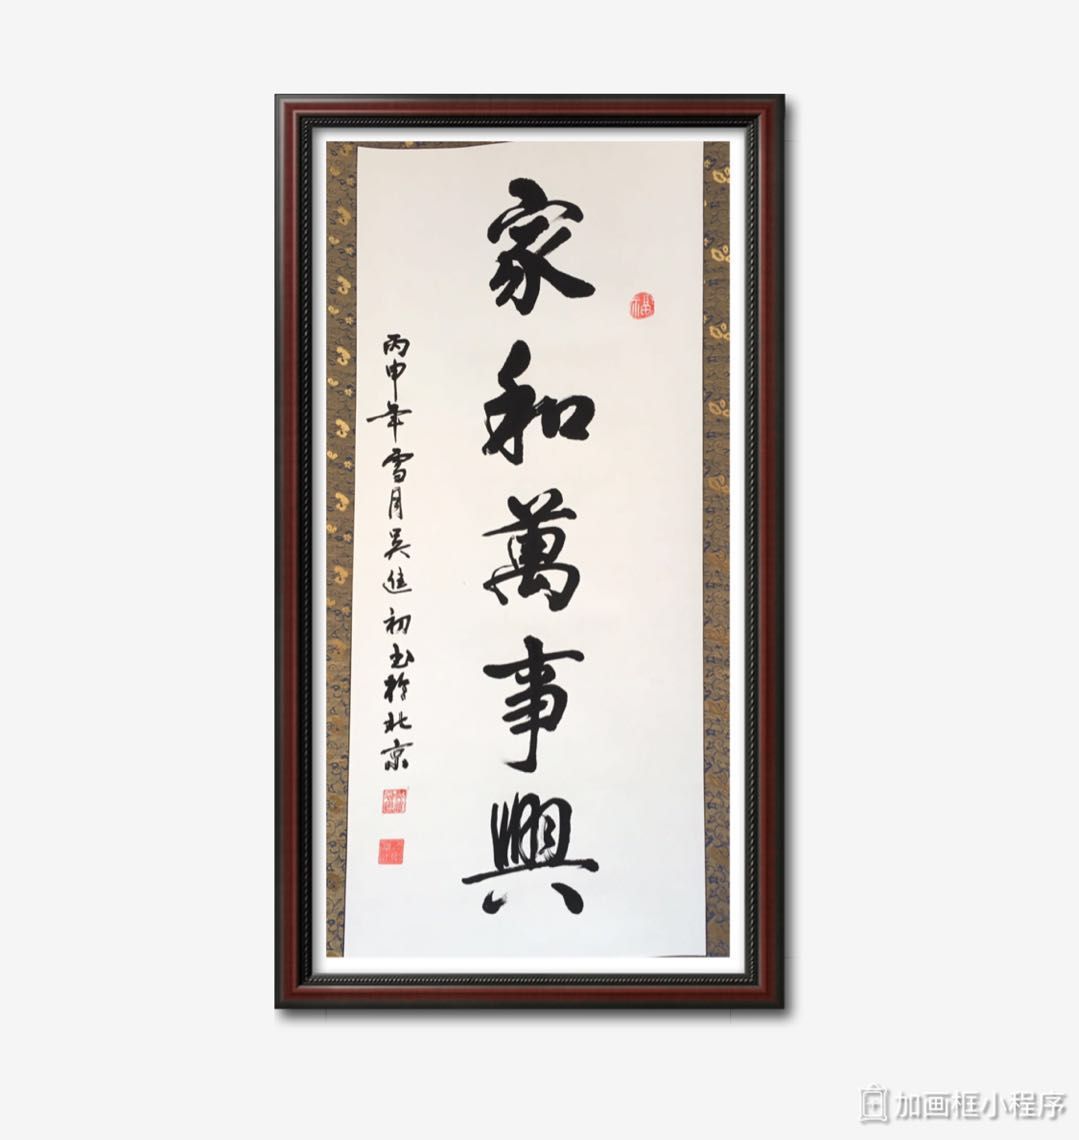 家和萬事興
福
丙申年雪月吴進初书於北京
加画框小程序